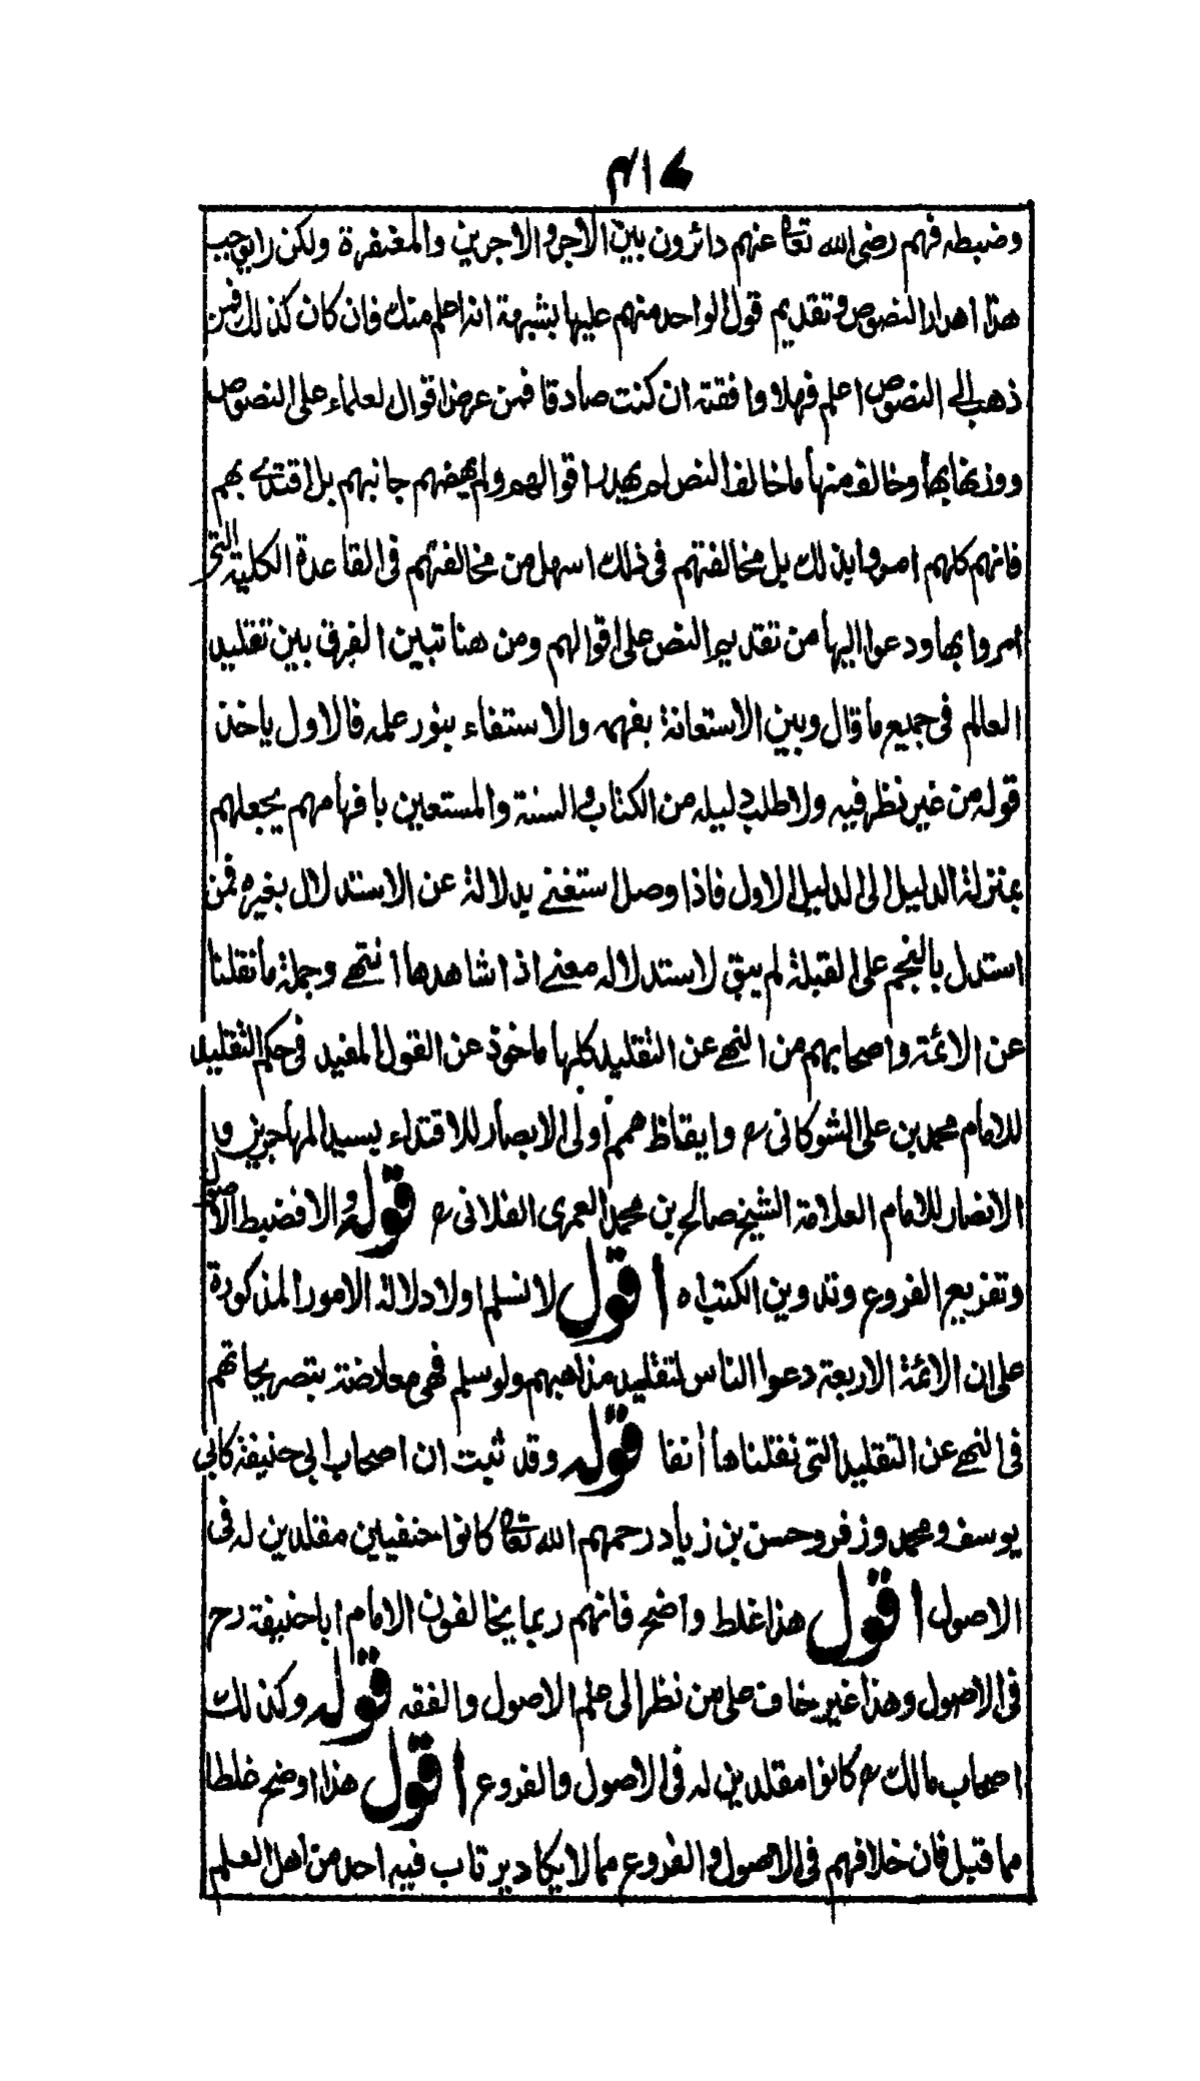 ٤١٤
وضبطه فهم رضي الله تعالى عنهم دائرون بين الاجر والاجرين والمغفرة ولكن لا يوجب
هذا اهدار النصوص وتقديم قول الواحد منهم عليها بشبهة انه اعلم منك فان كان كذلك فمن
ذهب الى النصوص اعلم فهلا وافقته ان كنت صادقا فمن عرض اقوال لعلماء على النصوص
ووزنها بها وخالف منها ما خالف النص لم يهدر اقوالهم ولم يهضم جانبهم بل اقتدے بهم
فانهم كلهم امروا بذلك بل مخالفتهم في ذلك اسهل من مخالفتهم في القاعدة الكلية التي
امروا بها ودعوا اليها من تقديم النص على اقوالهم ومن هنا تبين الفرق بين تقليد
العالم في جميع ما قال وبين الاستعانة بفهمه والاستضاء بنور علمه فالاول ياخذ
قوله من غير نظر فيه ولا طلب دليله من الكتاب والسنة والمستعين بافهامهم يجعلهم
بمنزلة الدليل الى لدليل الاول فاذا وصل استغنے بدلالة عن الاستدلال بغيره فمن
استدل بالنجم على القبلة لم يبق لاستدلاله معنے اذا شاهدها انتهے وجملة ما نقلنا
عن الائمة واصحابهم من النهے عن التقليد كلها ماخوذ عن القول المفيد في حكم التقليد
للامام محمد بن على الشوكانى ؒ وايقاظ همم أولى الابصار للاقتداء بسيد المهاجرين و
الانصار للامام العلامة الشيخ صالح بن محمد العمرى الفلانى ؒ قوله والا فضبط الاصول
وتفريع الفروع وتدوين الكتب اه اقول لا نسلم اولا دلالة الامور المذكورة
على ان الائمة الاربعة دعوا الناس لتقليد مذاهبهم ولو سلم فهي معارضة بتصريحاتهم
في النهے عن التقليد التي نقلناها أنفا قوله وقد ثبت ان اصحاب ابي حنيفة كابي
يوسف ومحمد وزفر وحسن بن زياد رحمهم الله تعالى كانوا حنفيين مقلدين له في
الاصول اقول هذا غلط واضح فانهم ربما يخالفون الامام ابا حنيفة رح
في الاصول وهذا غير خاف على من نظر الى علم الاصول والفقه قوله وكذلك
اصحاب مالك ؒ كانوا مقلدين له في الاصول والفروع اقول هذا اوضح غلطا
مما قبل فان خلافهم في الاصول والفروع مما لا يكاد يرتاب فيه احد من اهل العلم